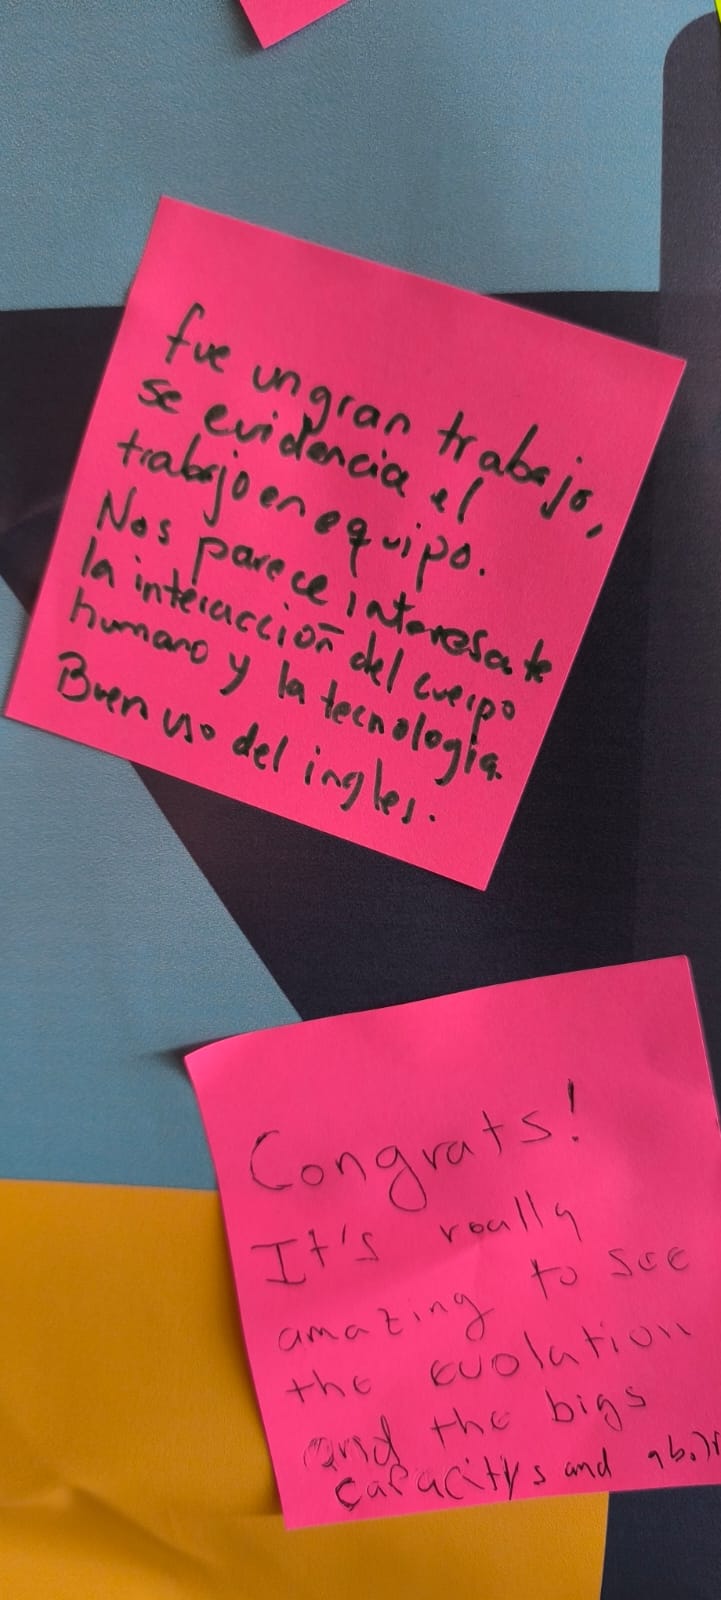 fue un gran trabajo,
se evidencia el
trabajo en equipo.
Nos parece interesante
la interacción del cuerpo
humano y la tecnología.
Buen uso del ingles.
Congrats!
It's really
amazing to see
the evolation
and the bigs
capacitys and